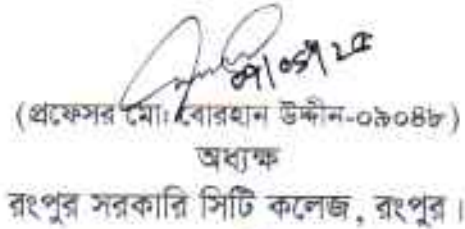 (প্রফেসর মো: বোরহান উদ্দীন-০৯০৪৮)
অধ্যক্ষ
রংপুর সরকারি সিটি কলেজ, রংপুর।